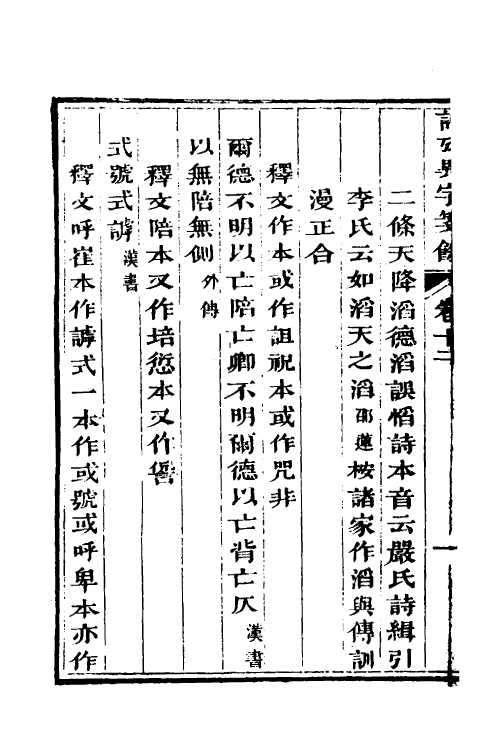 詩頁異字箋餘 卷十二 一
二條天降滔德滔誤慆詩本音云嚴氏詩緝引
李氏云如滔天之滔邵蓮桉諸家作滔與傳訓
漫正合
釋文作本或作詛祝本或作咒非
爾德不明以亡陪亡卿不明爾德以亡背亡仄漢書
以無陪無側外傳
釋文陪本又作培愆本又作諐
式號式謼漢書
釋文呼崔本作謼式一本作或號或呼卑本亦作